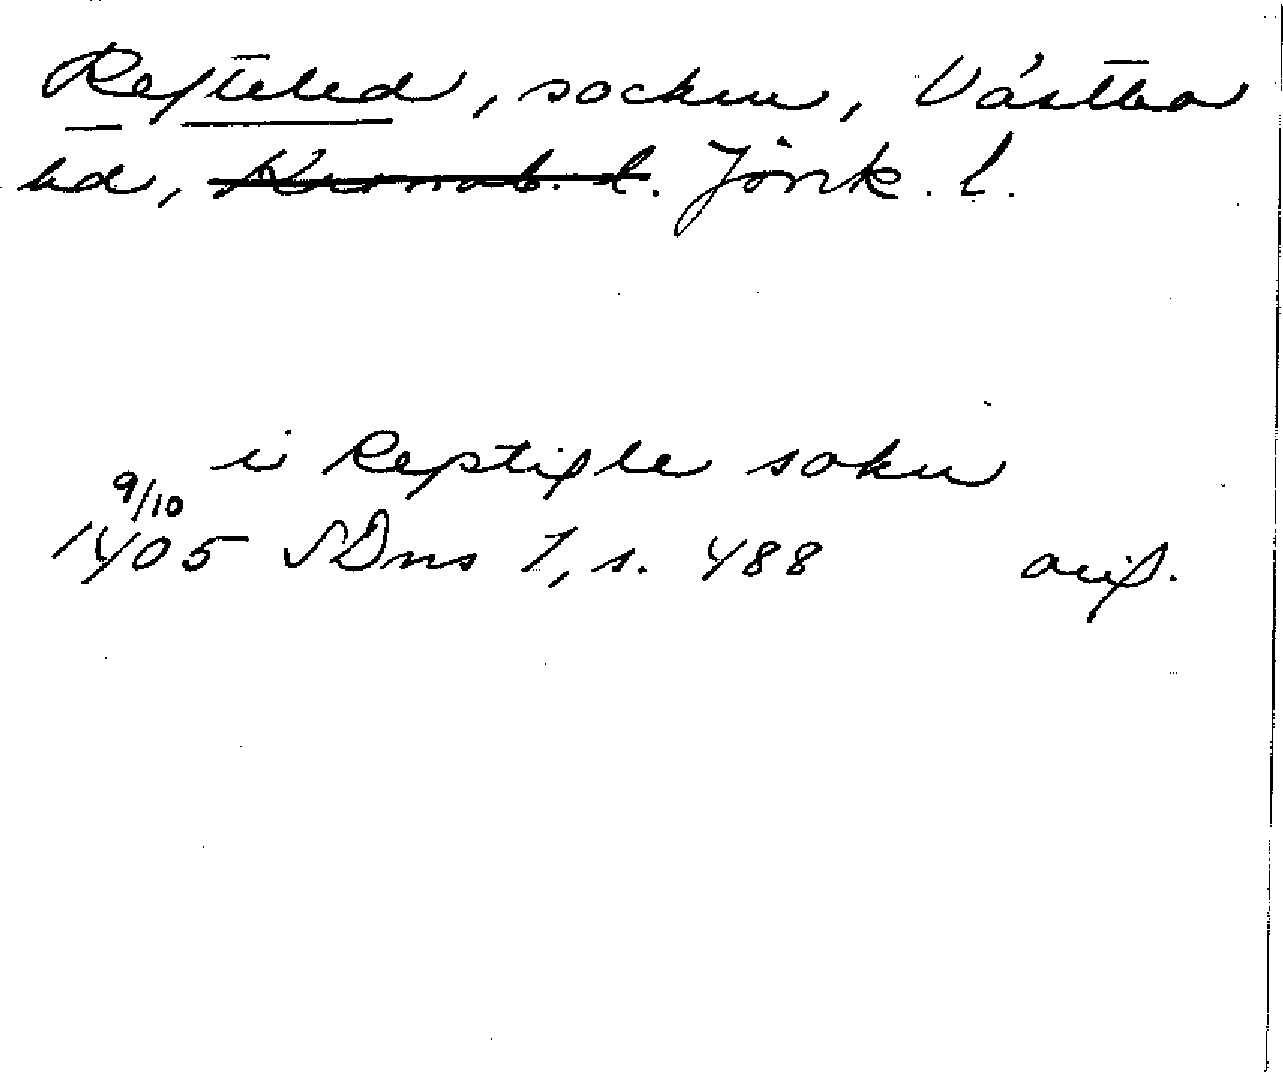 Refteled, socken, Västbo
hd, Kronob. l. Jönk. l.
i Reptisle sokn
9/10
1405 SDns 1, s. 488 avs.